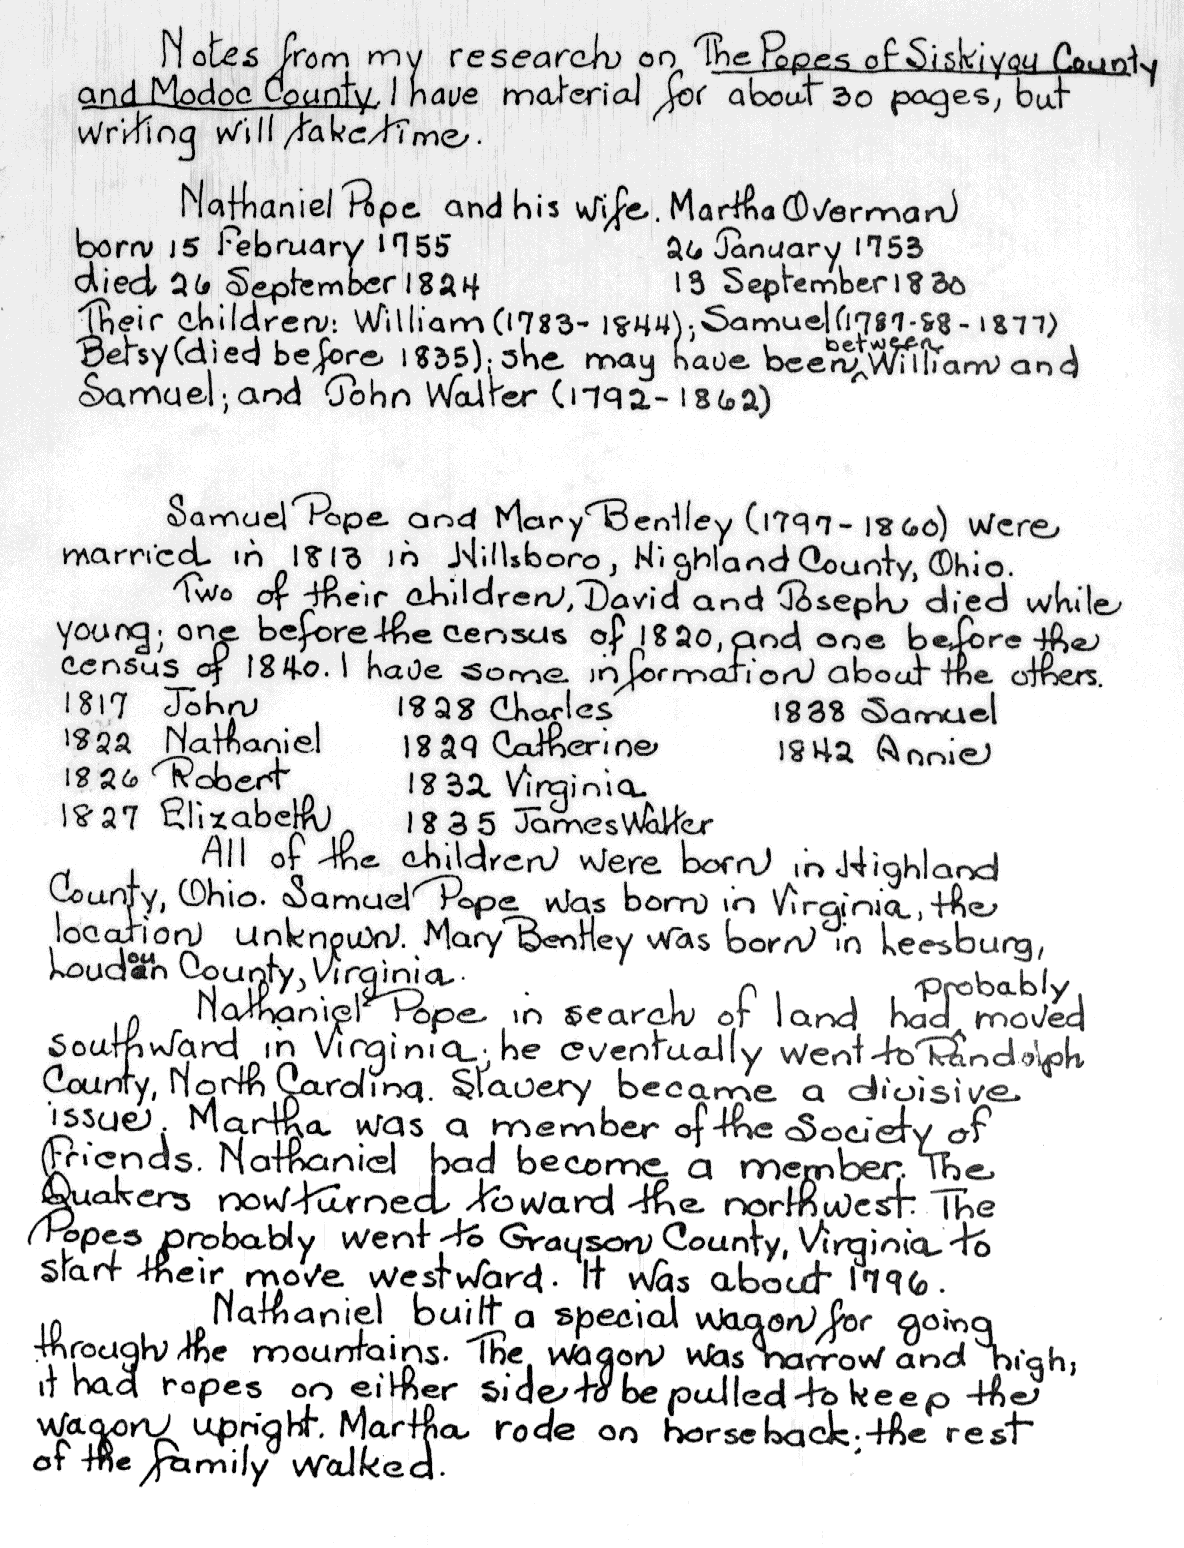 Notes from my research on The Popes of Siskiyou County
and Modoc County. I have material for about 30 pages, but
writing will take time.
Nathaniel Pope and his wife. Martha Overman
born 15 February 1755 26 January 1753
died 26 September 1824 13 September 1830
Their children: William (1783-1844); Samuel (1787-88-1877)
Betsy (died before 1835); she may have been between William and
Samuel; and John Walter (1792-1862)
Samuel Pope and Mary Bentley (1797-1860) were
married in 1813 in Hillsboro, Highland County, Ohio.
Two of their children, David and Joseph died while
young; one before the census of 1820, and one before the
census of 1840. I have some information about the others.
1817 John 1828 Charles 1838 Samuel
1822 Nathaniel 1829 Catherine 1842 Annie
1826 Robert 1832 Virginia
1827 Elizabeth 1835 James Walter
All of the children were born in Highland
County, Ohio. Samuel Pope was born in Virginia, the
location unknown. Mary Bentley was born in Leesburg,
Loudoun County, Virginia.
Nathaniel Pope in search of land had probably moved
southward in Virginia; he eventually went to Randolph
County, North Carolina. Slavery became a divisive
issue. Martha was a member of the Society of
Friends. Nathaniel had become a member. The
Quakers now turned toward the northwest. The
Popes probably went to Grayson County, Virginia to
start their move westward. It was about 1796.
Nathaniel built a special wagon for going
through the mountains. The wagon was narrow and high;
it had ropes on either side to be pulled to keep the
wagon upright. Martha rode on horseback; the rest
of the family walked.